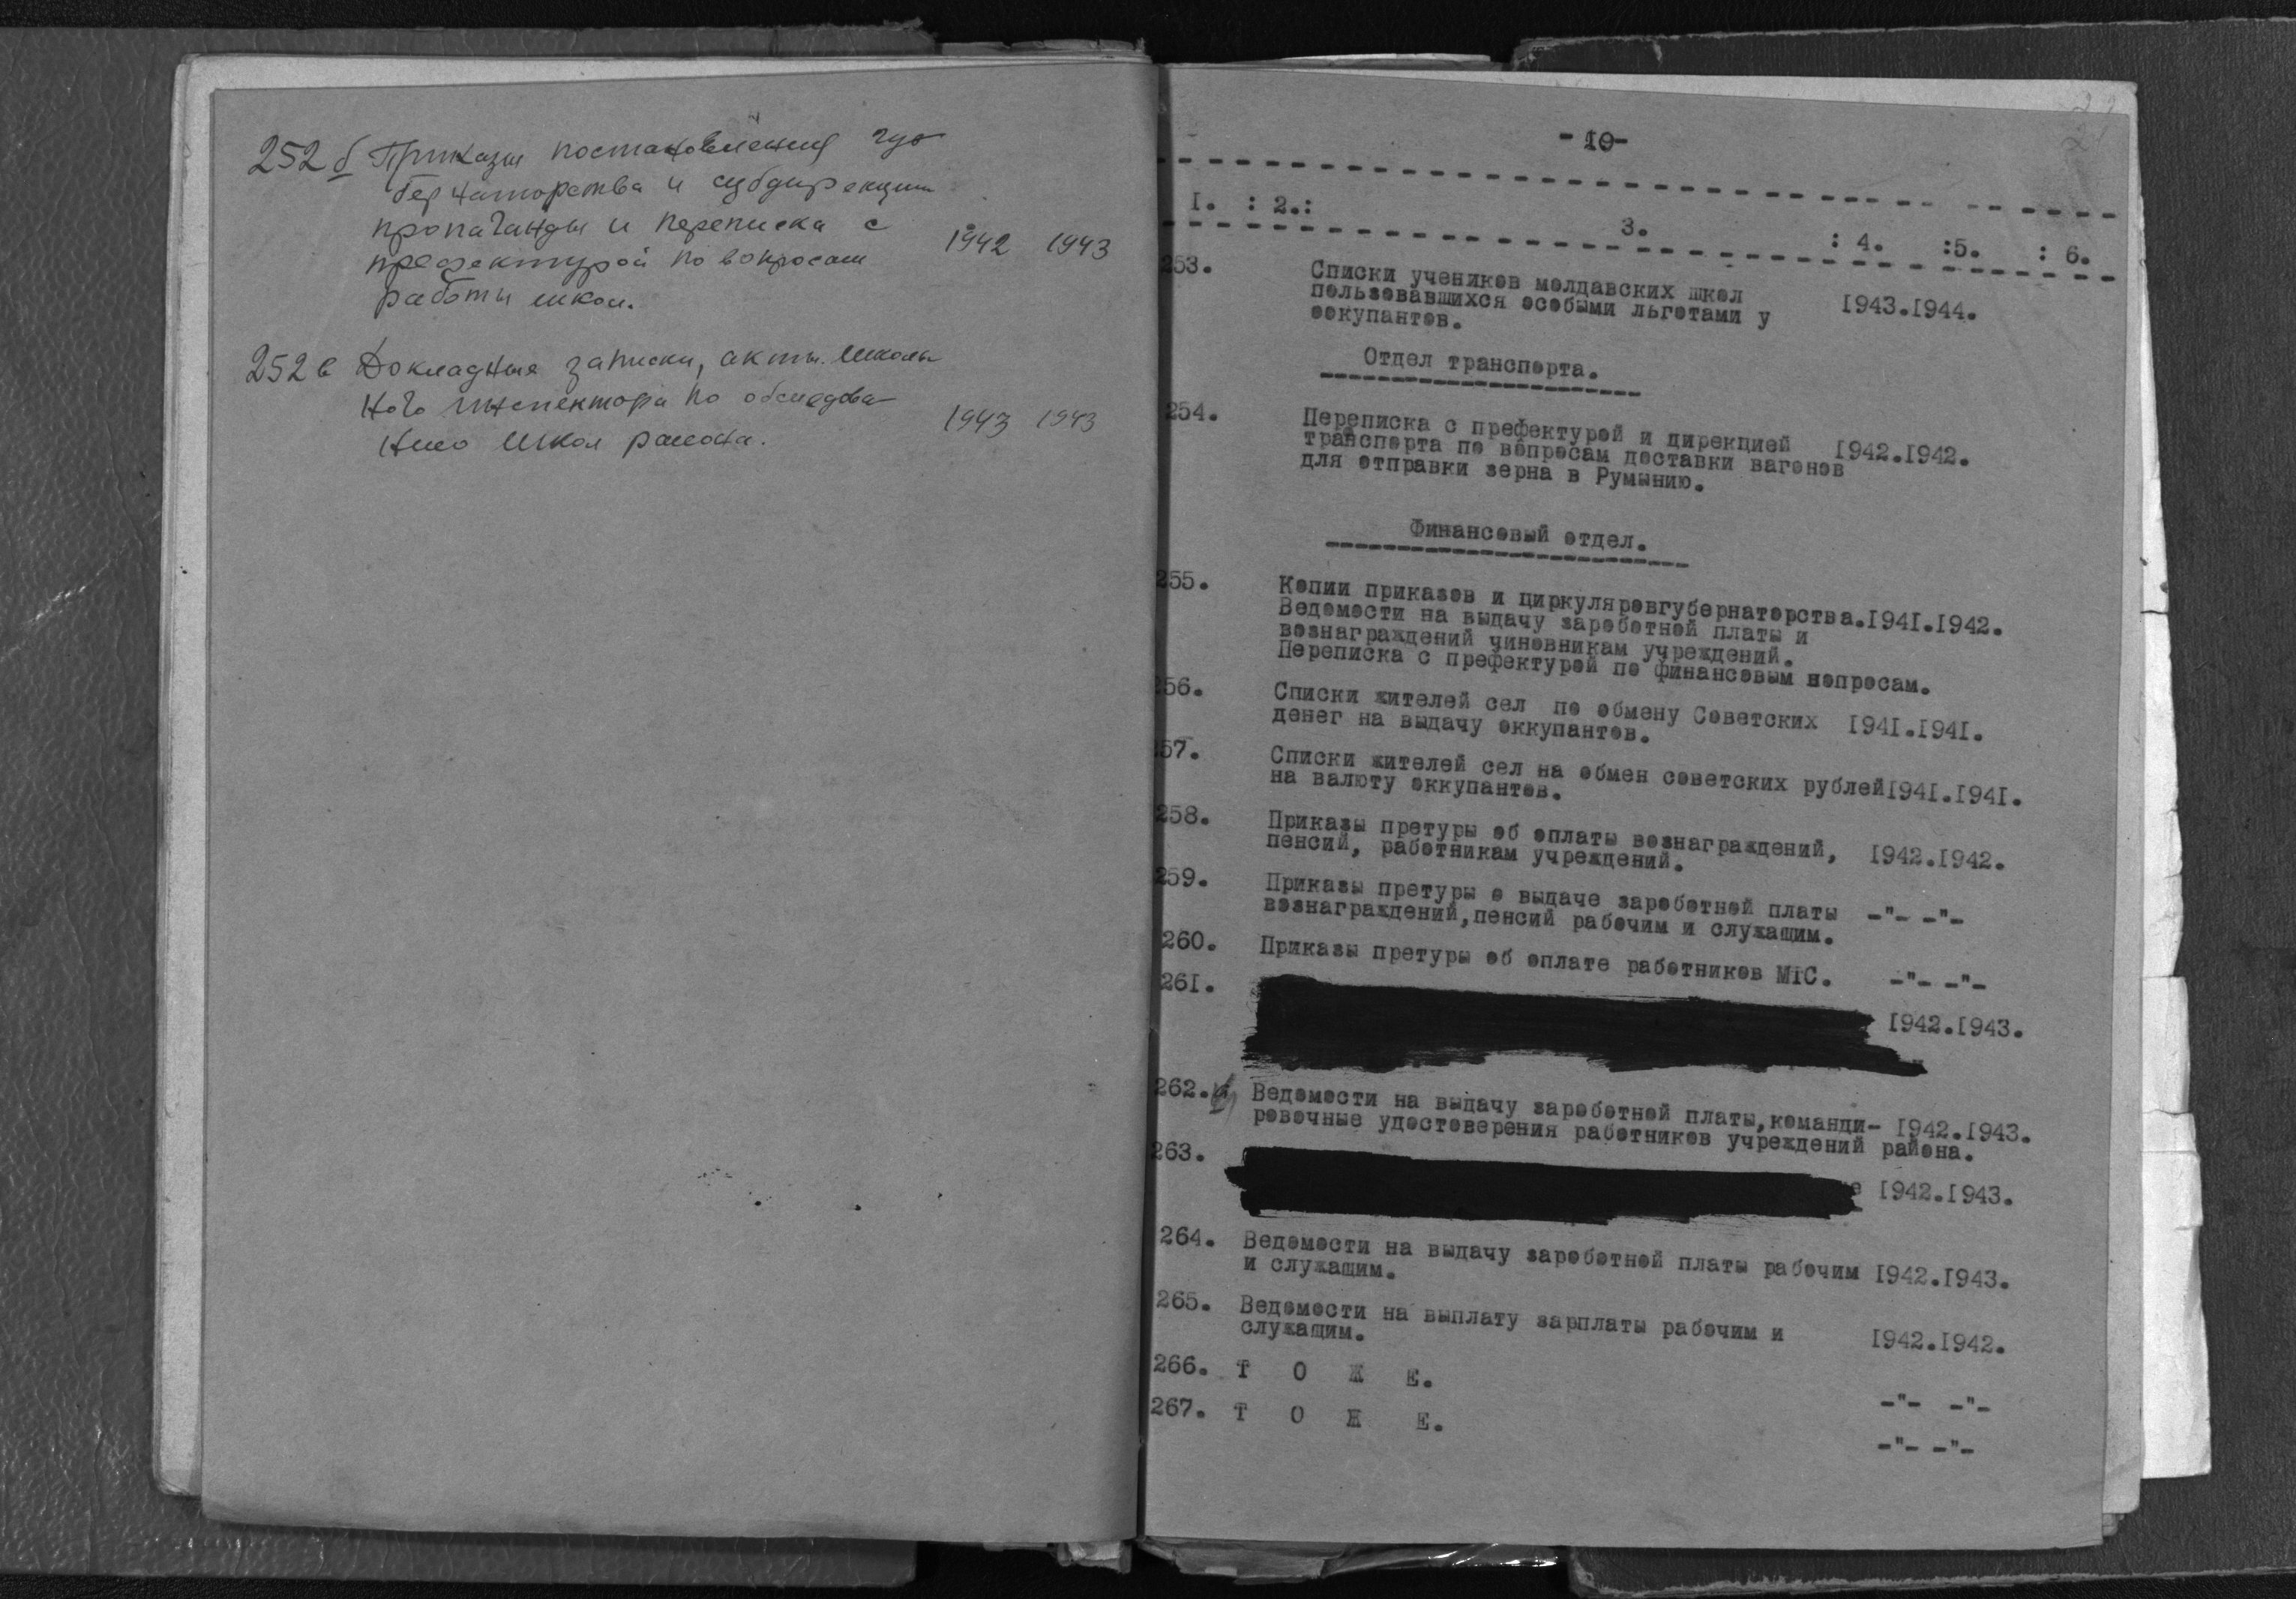 252 б Приказы постановления гу-
бернаторства и субдирекции
пропаганды и переписка с
префектурой по вопросам
работы школ.
1942 1943
252 в Докладные записки, акты школь
ного инспектора по обследова-
нию школ района.
1943 1943
-19-
I. : 2.: 3. : 4. :5. : 6.
253. Списки учеников молдавских школ
пользовавшихся особыми льготами у
оокупантов.
I943.I944.
Отдел транспорта.
254. Переписка с префектурой и дирекцией I942.I942.
транспорта по вопросам доставки вагонов
для отправки зерна в Румынию.
Финансовый отдел.
255. Копии приказов и циркуляровгубернаторства.I94I.I942.
Ведомости на выдачу зароботной платы и
вознаграждений чиновникам учреждений.
Переписка с префектурой по финансовым вопросам.
256. Списки жителей сел по обмену Советских I94I.I94I.
денег на выдачу оккупантов.
257. Списки жителей сел на обмен советских рублейI94I.I94I.
на валюту оккупантов.
258. Приказы претуры об оплаты вознаграждений, I942.I942.
пенсий, работникам учреждений.
259. Приказы претуры о выдаче зароботной платы -"- -"-
вознаграждений,пенсий рабочим и служащим.
260. Приказы претуры об оплате работников МТС. -"- -"-
26I.
I942.I943.
262. Ведомости на выдачу зароботной платы,команди- I942.I943.
ровочные удостоверения работников учреждений района.
263.
I942.I943.
264. Ведомости на выдачу зароботной платы рабочим I942.I943.
и служащим.
265. Ведомости на выплату зарплаты рабочим и I942.I942.
служащим.
266. Т О Ж Е. -"- -"-
267. Т О Ж Е. -"- -"-